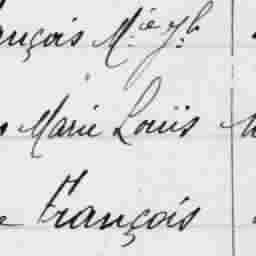 ançois M.ie Jh
Marie Louis
François